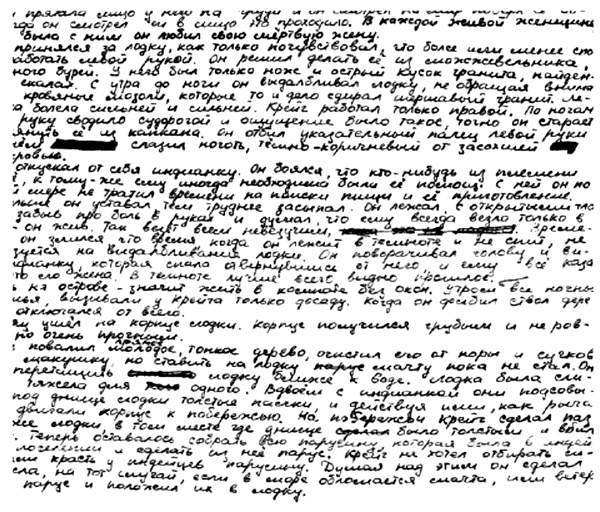 прятала лицо у него на груди и он смотрел
гда он смотрел ей в лицо это проходило. В каждой живой женщине
было с ним он любил свою мёртвую жену.
принялся за лодку, как только почувствовал, что более или менее сно
работать левой рукой. Он решил делать её из можжевельника,
ного бурей. У него был только нож и острый кусок гранита, найден
скалах. С утра до ночи он выдалбливал лодку, не обращая внима
кровяные мозоли, которые то и дело сдирал шершавый гранит. Ле
ка болела сильней и сильней. Крейг работал только правой. По ночам
руку сводило судорогой и ощущение было такое, точно он старает
януть её из капкана. Он отбил указательный палец левой руки
слазил ноготь, тёмно-коричневый от засохшей
кровью.
отпускал от себя индианку. Он боялся, что кто-нибудь из племени
, к тому-же ему иногда необходима была её помощь. С ней он по
мере не тратил времени на поиски пищи и её приготовление.
льше он уставал тем труднее засыпал. Он лежал с открытыми гла
забыв про боль в руках и думал, что ему всегда везло только в
он жив. Так везёт всем невезучим, Време-
он злился что время когда он лежит в темноте и не спит, не
зуется на выдалбливание лодки. Он поворачивал голову и ви-
дианку которая спала отвернувшись от него и ему всё каза
то его жена. В темноте лучше всего видно прошлое
на острове - значит жить в комнате без окон. Утром все ночны
вызывали у Крейга только досаду. Когда он долбил ствол дере
отключался от всего.
яц ушёл на корпус лодки. Корпус получился грубым и неров-
но очень прочным.
повалил молодое, прямое тонкое дерево, очистил его от коры и сучков
макушку но ставить на лодку парус мачту пока не стал. Он
перетащить лодку ближе к воде. Лодка была сли-
тяжела для одного. Вдвоём с индианкой они подсовы-
под днище лодки толстые палки и действуя ими, как рыча
двигали корпус к побережью. На побережьи Крейг сделал паз
же лодки в том месте где днище было толстым и вбил
Теперь оставалось собрать всю парусину которая была в индей
поселении и сделать из неё парус. Крейг не хотел отбирать си-
или красть у индейцев парусину. Думая над этим он сделал
сла, на тот случай, если в море обломается мачта, или ветер
парус и положил их в лодку.